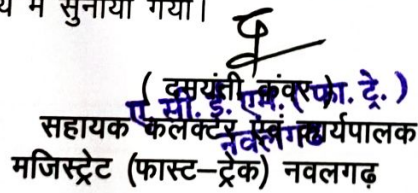 में सुनाया गया।
( दमयंती कंवर )
ए. सी. ई. एम. (फा. ट्रे.)
नवलगढ
सहायक कलक्टर एवं कार्यपालक
मजिस्ट्रेट (फास्ट–ट्रेक) नवलगढ